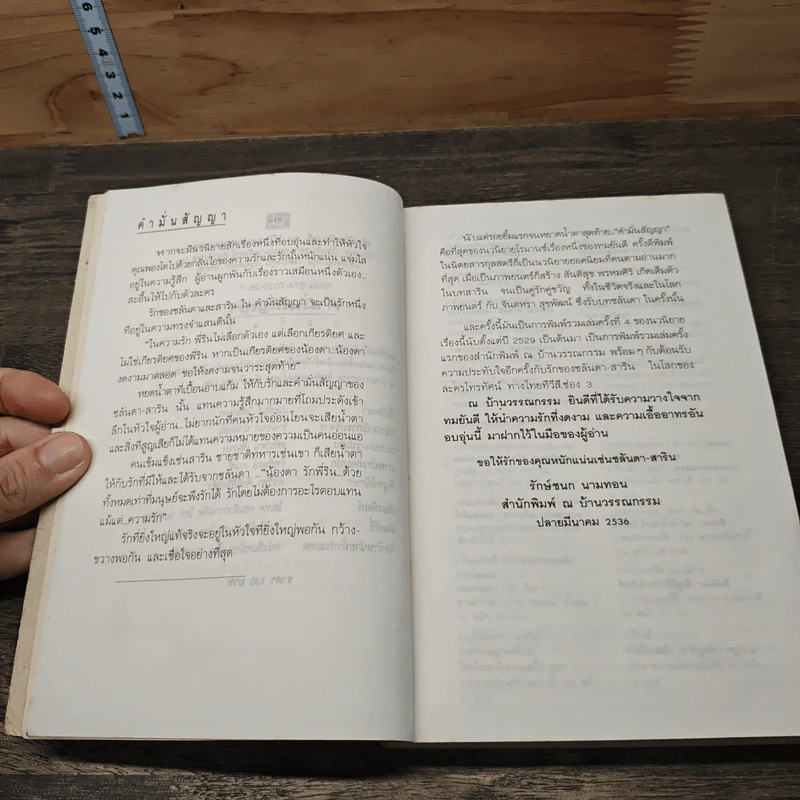 6
5
4
3
2
1
คำมั่นสัญญา
หากจะมีนวนิยายสักเรื่องหนึ่งที่อบอุ่นและทำให้หัวใจ
คุณพองโตไปด้วยกลิ่นไอของความรักและรักนั้นหนักแน่น แจ่มใส
อยู่ในความรู้สึก ผู้อ่านผูกพันกับเรื่องราวเสมือนหนึ่งตัวเอง..
สะอื้นไห้ไปกับตัวละคร
รักของชลันดาและสาริน ใน คำมั่นสัญญา จะเป็นรักหนึ่ง
ที่อยู่ในความทรงจำแสนดีนั้น
"ในความรัก พี่รินไม่เลือกตัวเอง แต่เลือกเกียรติยศ และ
ไม่ใช่เกียรติยศของพี่ริน หากเป็นเกียรติยศของน้องดา..น้องดา
งดงามมาตลอด ขอให้งดงามจนวาระสุดท้าย"
หยดน้ำตาที่เปื้อนอาบแก้ม ให้กับรักและคำมั่นสัญญาของ
ชลันดา-สาริน นั้น แทนความรู้สึกมากมายที่โถมประดังเข้า
ลึกในหัวใจผู้อ่าน..ไม่ยากนักที่คนหัวใจอ่อนโยนจะเสียน้ำตา
และสิ่งที่สูญเสียก็ไม่ได้แทนความหมายของความเป็นคนอ่อนแอ
คนเข้มแข็งเช่นสาริน ชายชาติทหารเช่นเขา ก็เสียน้ำตา
ให้กับรักที่มีให้และได้รับจากชลันดา .."น้องดา รักพี่ริน..ด้วย
ทั้งหมดเท่าที่มนุษย์จะพึงรักได้ รักโดยไม่ต้องการอะไรตอบแทน
แม้แต่..ความรัก"
รักที่ยิ่งใหญ่แท้จริงจะอยู่ในหัวใจที่ยิ่งใหญ่พอกัน กว้าง-
ขวางพอกัน และเชื่อใจอย่างที่สุด
นับแต่รอยยิ้มแรกจนหยาดน้ำตาสุดท้าย.."คำมั่นสัญญา"
คือที่สุดของนวนิยายโรมานซ์เรื่องหนึ่งของทมยันตี ครั้งตีพิมพ์
ในนิตยสารกุลสตรีก็เป็นนวนิยายยอดนิยมที่คนตามอ่านมาก
ที่สุด เมื่อเป็นภาพยนตร์ก็สร้าง สันติสุข พรหมศิริ เกิดเต็มตัว
ในบทสาริน จนเป็นคู่รักคู่ขวัญ ทั้งในชีวิตจริงและในโลก
ภาพยนตร์ กับ จินตหรา สุขพัฒน์ ซึ่งรับบทชลันดา ในครั้งนั้น
และครั้งนี้มันเป็นการพิมพ์รวมเล่มครั้งที่ 4 ของนวนิยาย
เรื่องนี้นับตั้งแต่ปี 2529 เป็นต้นมา เป็นการพิมพ์รวมเล่มครั้ง
แรกของสำนักพิมพ์ ณ บ้านวรรณกรรม พร้อมๆ กับต้อนรับ
ความประทับใจอีกครั้งกับรักของชลันดา-สาริน ในโลกของ
ละครโทรทัศน์ ทางไทยทีวีสีช่อง 3
ณ บ้านวรรณกรรม ยินดีที่ได้รับความวางใจจาก
ทมยันตี ให้นำความรักที่งดงาม และความเอื้ออาทรอัน
อบอุ่นนี้ มาฝากไว้ในมือของผู้อ่าน
ขอให้รักของคุณหนักแน่นเช่นชลันดา-สาริน
รักษ์ชนก นามทอน
สำนักพิมพ์ ณ บ้านวรรณกรรม
ปลายมีนาคม 2536